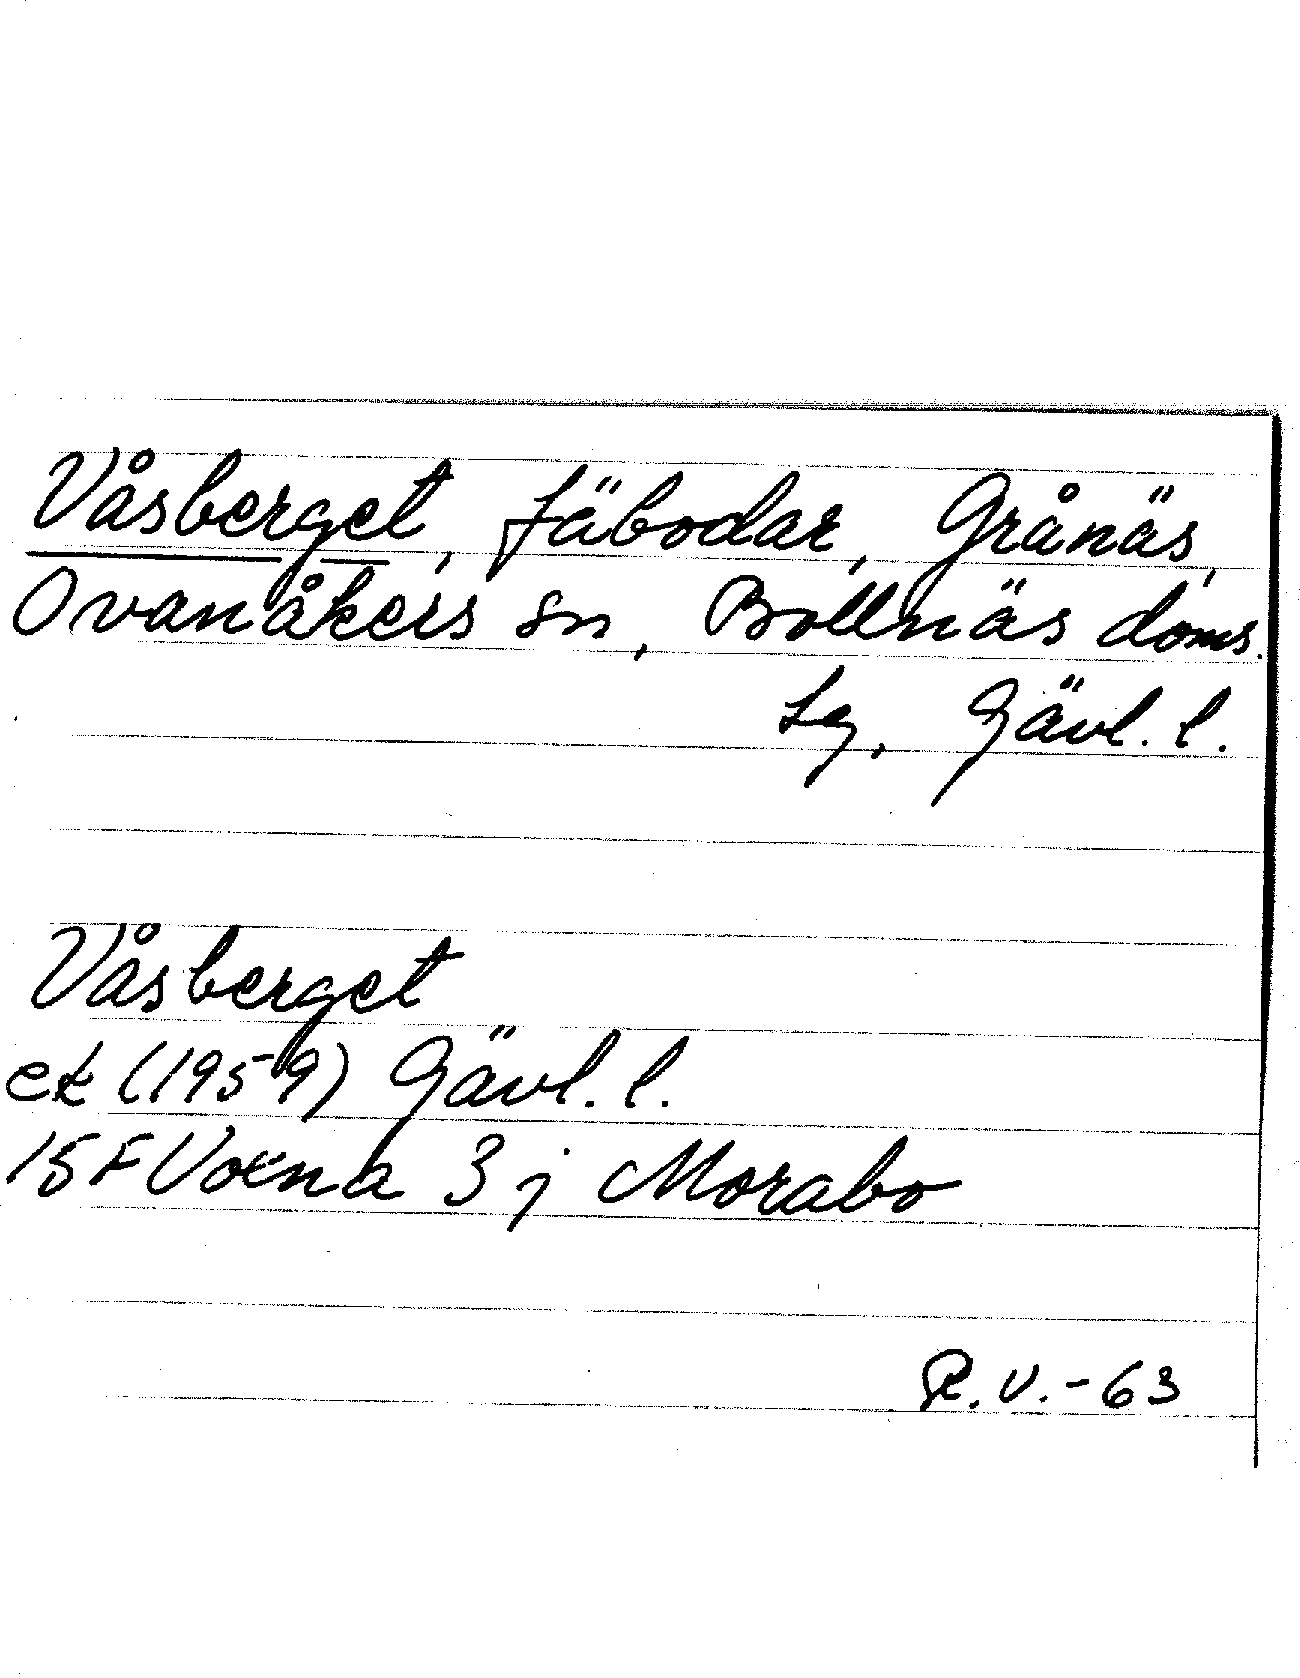 Våsberget, fäbodar, Grånäs,
Ovanåkers sn, Bollnäs doms.
sg, Gävl. l.
Våsberget
ek (1959) Gävl. l.
15F Voxna 3 j Morabo
R.V.-63